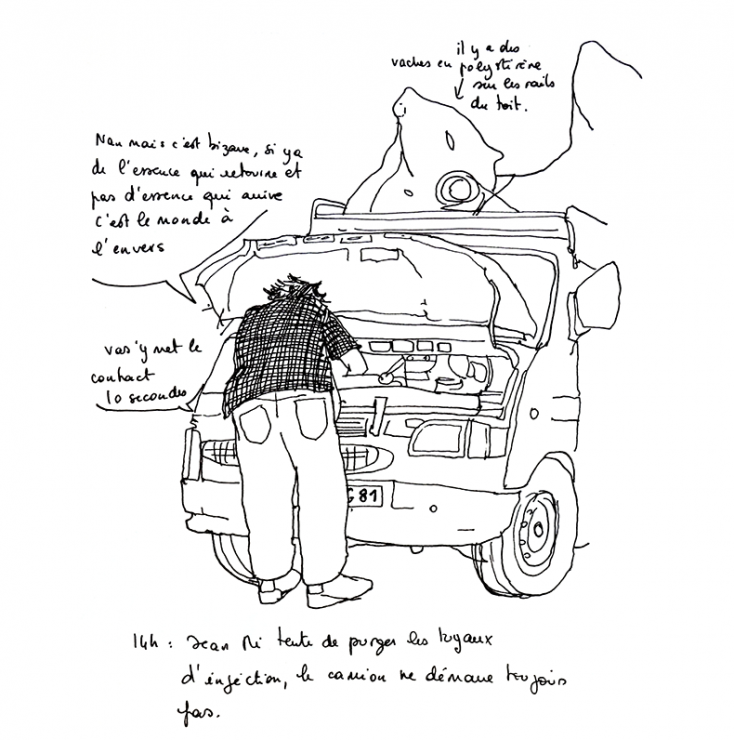 il y a des
vaches en polystirène
sur les rails
du toit.
Nan mais c'est bizarre, si ya
de l'essence qui retourne et
pas d'essence qui arrive
c'est le monde à
l'envers
vas'y met le
contact
10 secondes
G 81
14h : Jean Mi tente de purger les tuyaux
d'injection, le camion ne démarre toujours
pas.